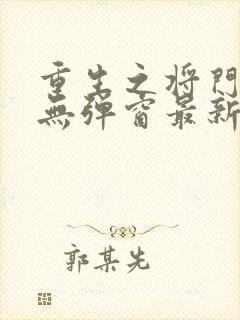 重生之将門
無弹窗最新
郭某先